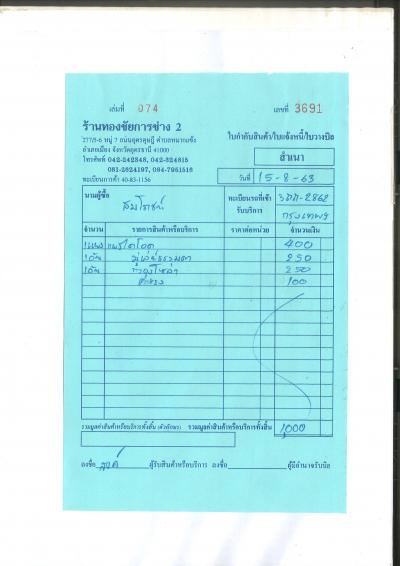 เล่มที่ 074 เลขที่ 3691
ร้านทองชัยการช่าง 2
277/5-6 หมู่ 7 ถนนอุดรดุษฎี ตำบลหมากแข้ง
อำเภอเมือง จังหวัดอุดรธานี 41000
โทรศัพท์ 042-242348, 042-324815
081-2624197, 084-7951516
ทะเบียนการค้า 40-83-1156
ใบกำกับสินค้า/ใบแจ้งหนี้/ใบวางบิล
สำเนา
วันที่ 15-8-63
นามผู้ซื้อ สมโภชน์
ทะเบียนรถที่เข้ารับบริการ 2862
กรุงเทพฯ
จำนวน รายการสินค้าหรือบริการ ราคาต่อหน่วย จำนวนเงิน
400
250
250
100
รวมมูลค่าสินค้าหรือบริการทั้งสิ้น (ตัวอักษร) รวมมูลค่าสินค้าหรือบริการทั้งสิ้น 1,000
ลงชื่อ ผู้รับสินค้าหรือบริการ ลงชื่อ ผู้มีอำนาจรับบิล